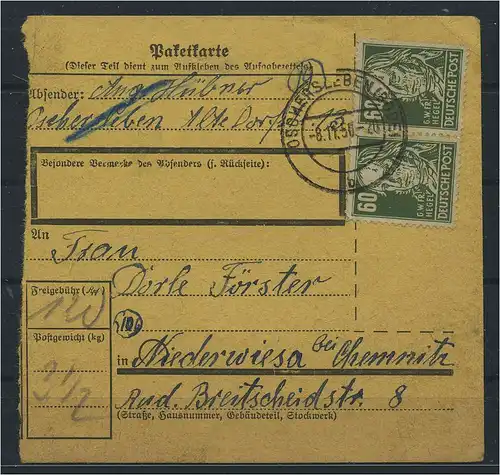 Paketkarte
(Dieser Teil dient zum Aufkleben des Aufgabezettels)
Absender: Aug. Hübner
Oschersleben Alte Dorfstr. 12
Besondere Vermerke des Absenders (s. Rückseite):
An
Frau
Dörle Förster
Freigebühr
120
Postgewicht (kg)
3 1/2
in Niederwiesa bei Chemnitz
Rud. Breitscheidstr. 8
(Straße, Hausnummer, Gebäudeteil, Stockwerk)
OSCHERSLEBEN
-8.11.50
60
G.W.FR. HEGEL
DEUTSCHE POST
60
G.W.FR. HEGEL
DEUTSCHE POST